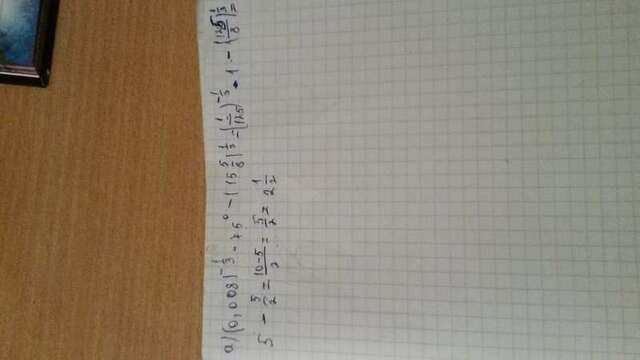 а) (0,008)^{-1/3} · 75⁰ - (15 5/8)^{1/3} = (1/125)^{-1/3} · 1 - (125/8)^{1/3} =
5 - 5/2 = (10-5)/2 = 5/2 = 2 1/2